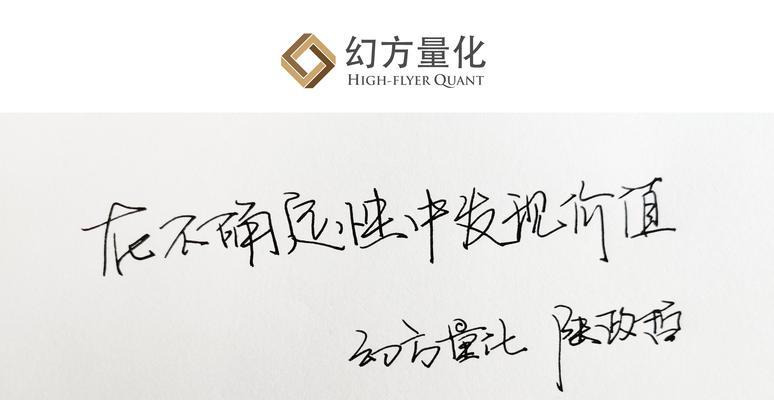 幻方量化
HIGH-FLYER QUANT
在不确定性中发现价值
幻方量化 陆政哲